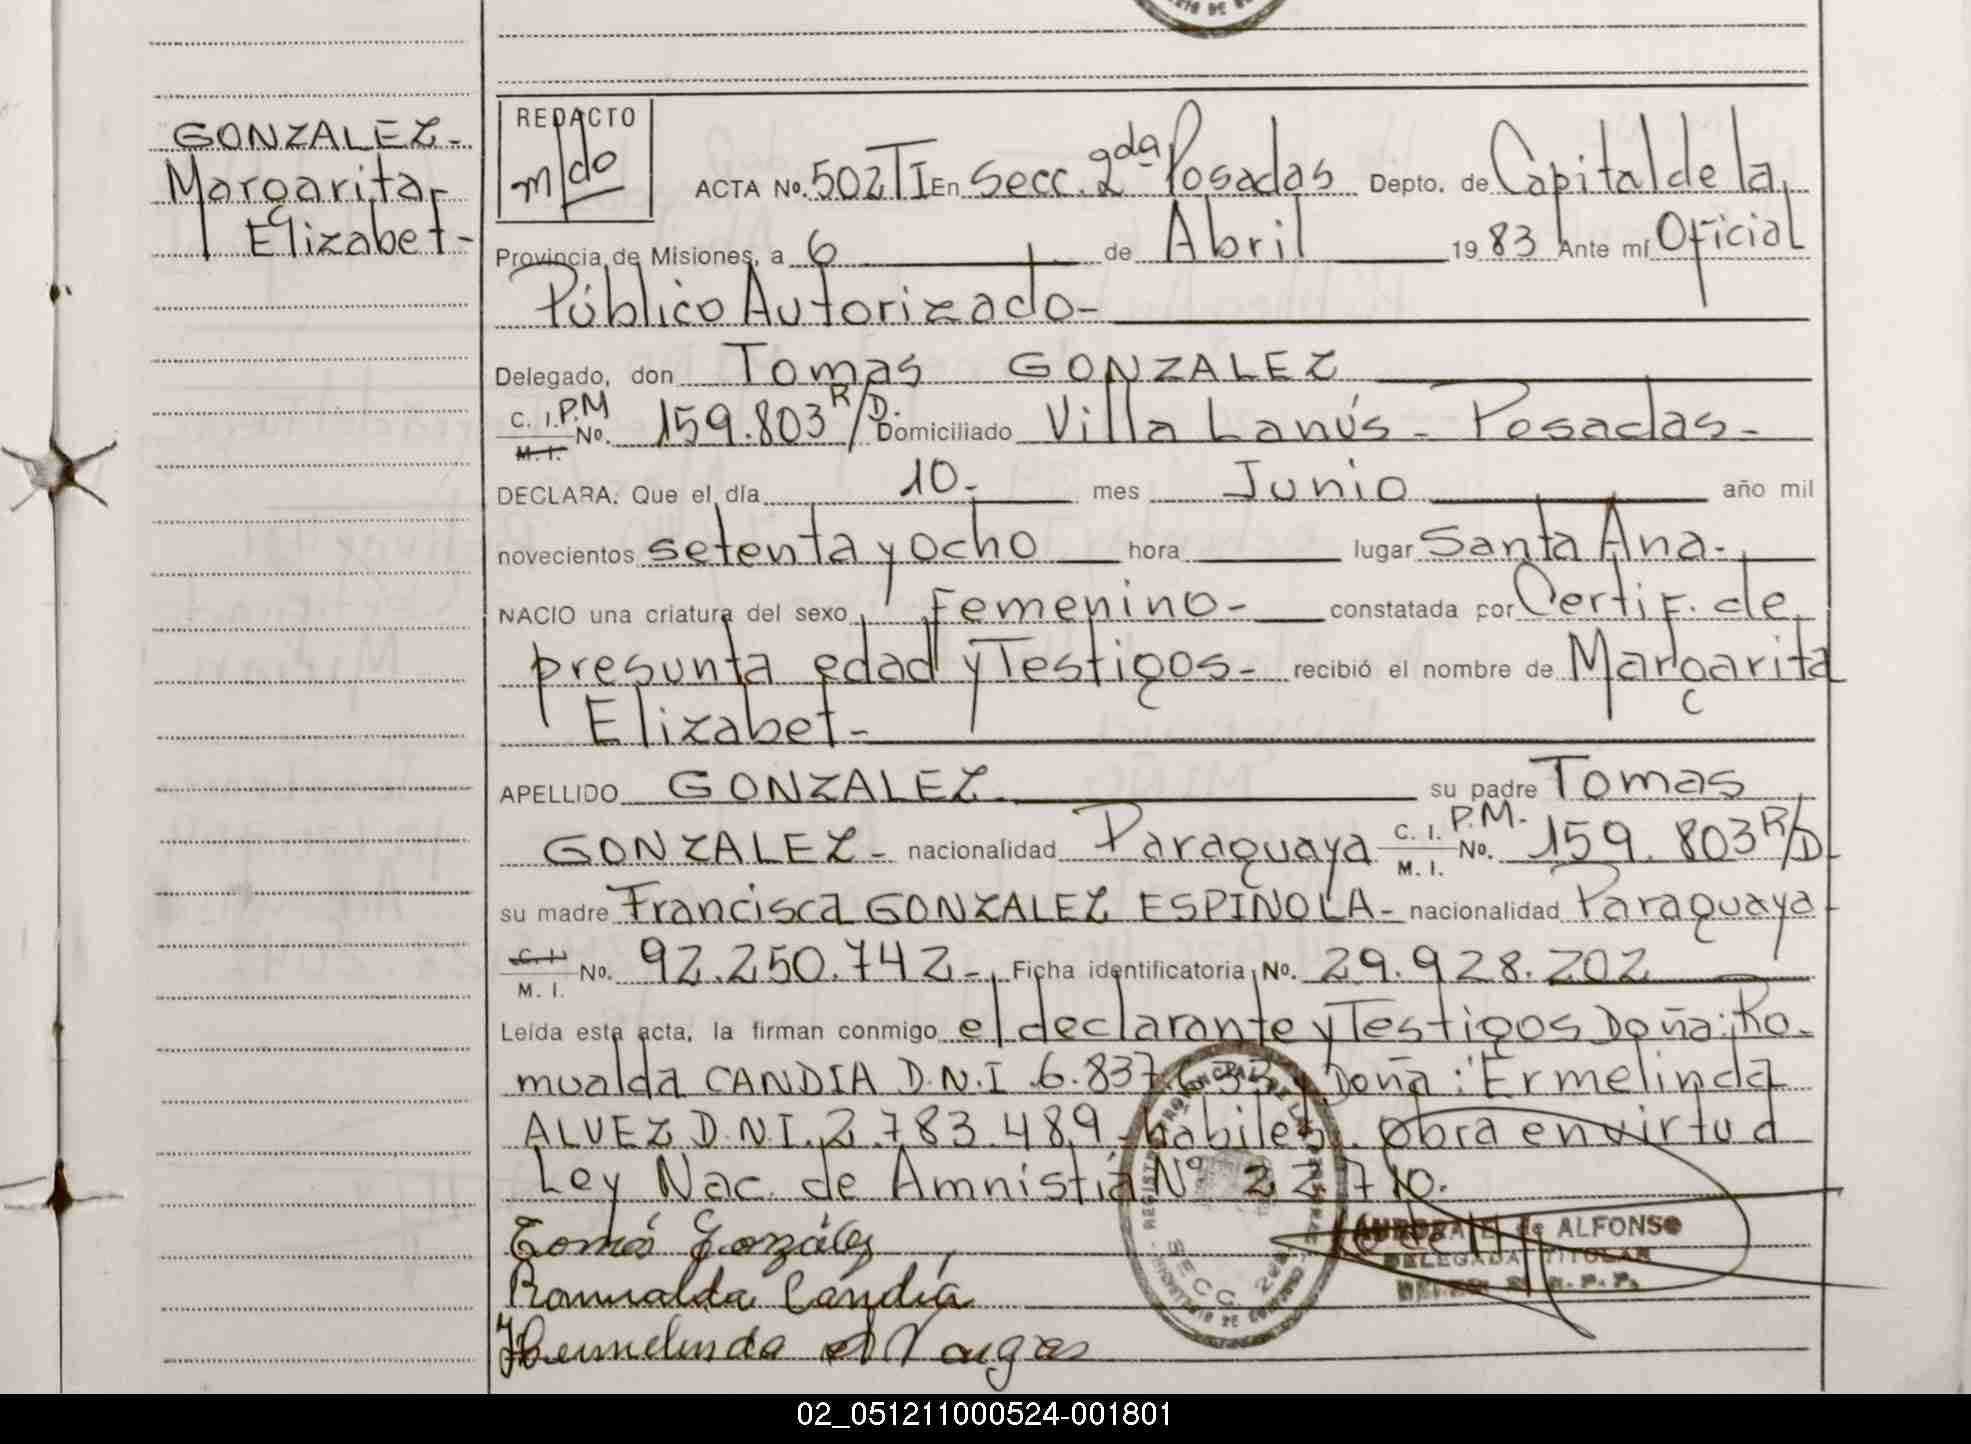 GONZALEZ-
Margarita-
Elizabet-
REDACTO
m/do
ACTA No. 502TI En Secc. 2da Posadas Depto. de Capital de la
Provincia de Misiones, a 6 de Abril 1983 Ante mí Oficial
Público Autorizado-
Delegado, don Tomas GONZALEZ
C. I. P.M
M. I. No. 159.803 R/D. Domiciliado Villa Lanús - Posadas-
DECLARA: Que el día 10- mes Junio año mil
novecientos setenta y ocho hora lugar Santa Ana-
NACIO una criatura del sexo Femenino- constatada por Certif. de
presunta edad y Testigos- recibió el nombre de Margarita
Elizabet-
APELLIDO GONZALEZ su padre Tomas
GONZALEZ- nacionalidad Paraguaya C. I. P.M. M. I. No. 159.803 R/D-
su madre Francisca GONZALEZ ESPINOLA- nacionalidad Paraguaya-
C. I. M. I. No. 92.250.742-, Ficha identificatoria No. 29.928.202
Leída esta acta, la firman conmigo el declarante y Testigos Doña: Ro-
mualda CANDIA D.N.I. 6.837. y Doña: Ermelinda
ALVEZ D.N.I. 2.783.489 habiles. obra en virtud
Ley Nac. de Amnistía Nº
Tomás González
AURORA de ALFONSO
DELEGADA TITULAR
Romualda Candía
SECC. 2da
02_051211000524-001801